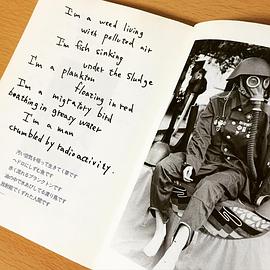 I'm a weed living
with polluted air
I'm fish sinking
under the sludge
I'm a plankton
floating in red
I'm a migratory bird
boathing in greasy water
I'm a man
crumbled by radioactivity.
汚い空気を吸って生きてく草です
ヘドロにしずむ魚です
赤く流れるプランクトンです
油の中で水あびしてる渡り鳥です
放射能でくずれた人間です